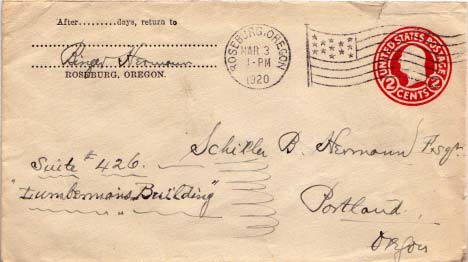 After.........days, return to
Binger Hermann
ROSEBURG, OREGON.
ROSEBURG, OREGON
MAR 3
1-PM
1920
UNITED STATES POSTAGE
2 CENTS 2
Schiller B. Hermann Esqr.
Suite #426.
"Lumbermans Building"
Portland.
Oregon